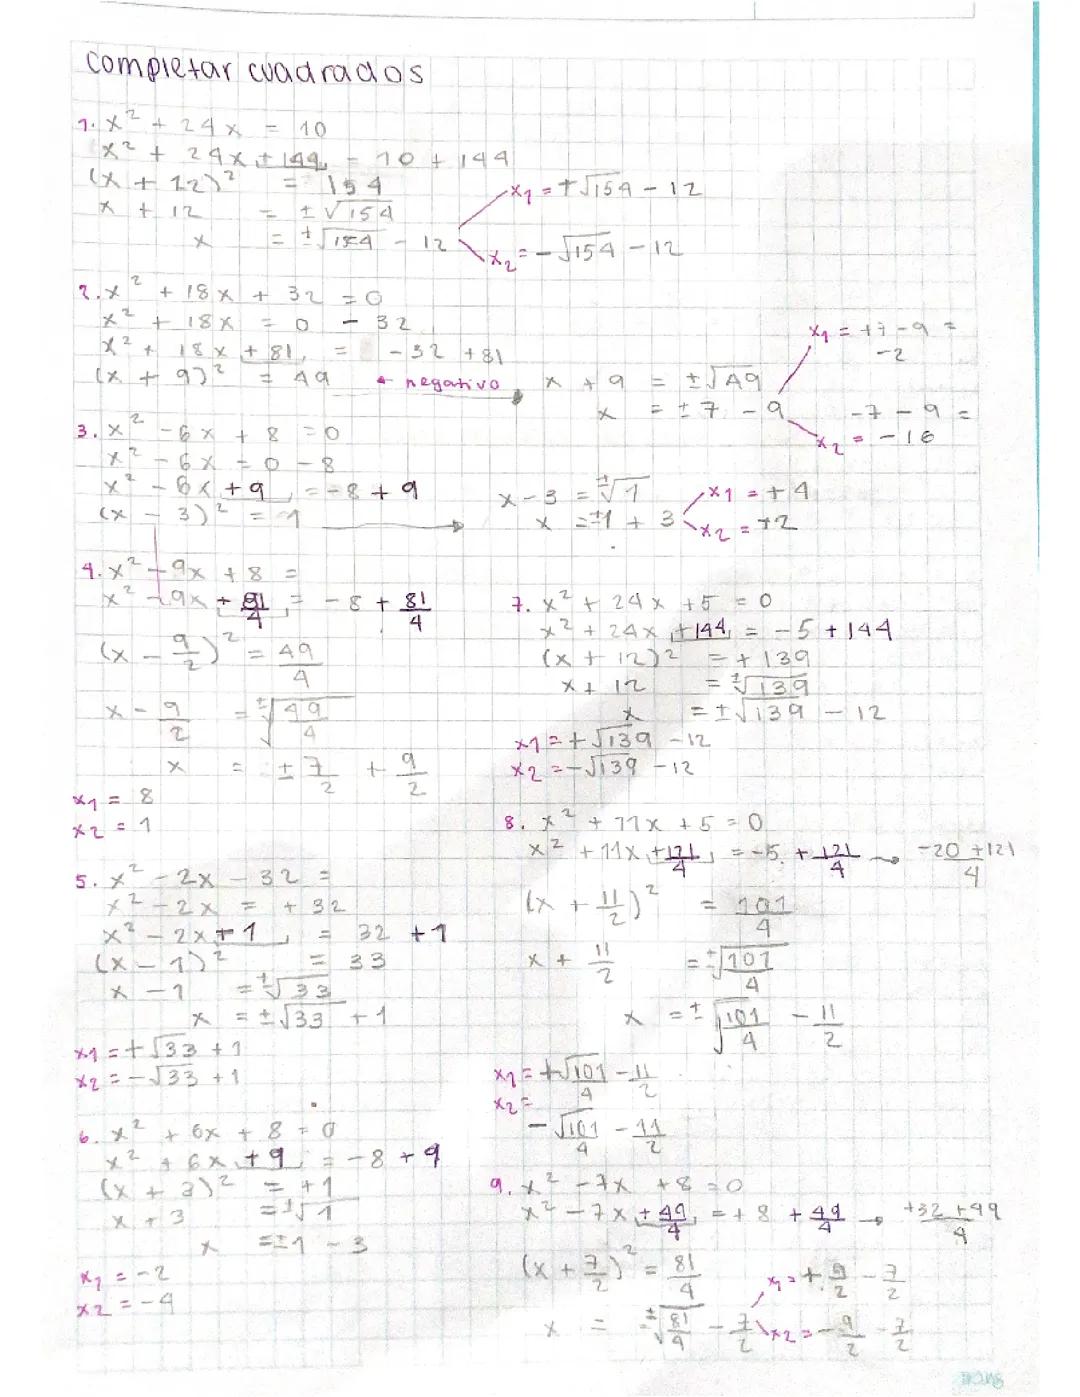 completar cuadrados
1. x² + 24x = 10
x² + 24x + 144 = 10 + 144
(x + 12)² = 154
x + 12 = ±√154
x = ±√154 - 12
x1 = +√154 - 12
x2 = -√154 - 12
2. x² + 18x + 32 = 0
x² + 18x = 0 - 32
x² + 18x + 81 = -32 + 81
(x + 9)² = 49 ← negativo
x + 9 = ±√49
x = ±7 - 9
x1 = +7 - 9 =
-2
-7 - 9 =
x2 = -16
3. x² - 6x + 8 = 0
x² - 6x = 0 - 8
x² - 6x + 9 = -8 + 9
(x - 3)² = 1
x - 3 = ±√1
x = ±1 + 3
x1 = +4
x2 = +2
4. x² - 9x + 8 =
x² - 9x + 81/4 = -8 + 81/4
(x - 9/2)² = 49/4
x - 9/2 = ±√49/4
x = ±7/2 + 9/2
x1 = 8
x2 = 1
5. x² - 2x - 32 =
x² - 2x = + 32
x² - 2x + 1 = 32 + 1
(x - 1)² = 33
x - 1 = ±√33
x = ±√33 + 1
x1 = +√33 + 1
x2 = -√33 + 1
6. x² + 6x + 8 = 0
x² + 6x + 9 = -8 + 9
(x + 3)² = +1
x + 3 = ±√1
x = ±1 - 3
x1 = -2
x2 = -4
7. x² + 24x + 5 = 0
x² + 24x + 144 = -5 + 144
(x + 12)² = + 139
x + 12 = ±√139
x = ±√139 - 12
x1 = +√139 - 12
x2 = -√139 - 12
8. x² + 11x + 5 = 0
x² + 11x + 121/4 = -5 + 121/4 → -20 + 121/4
(x + 11/2)² = 101/4
x + 11/2 = ±√101/4
x = ±√101/4 - 11/2
x1 = +√101/4 - 11/2
x2 =
-√101/4 - 11/2
9. x² - 7x + 8 = 0
x² - 7x + 49/4 = + 8 + 49/4 → +32 + 49/4
(x + 7/2)² = 81/4
x = ±√81/4 - 7/2
x1 = + 9/2 - 7/2
x2 = - 9/2 - 7/2